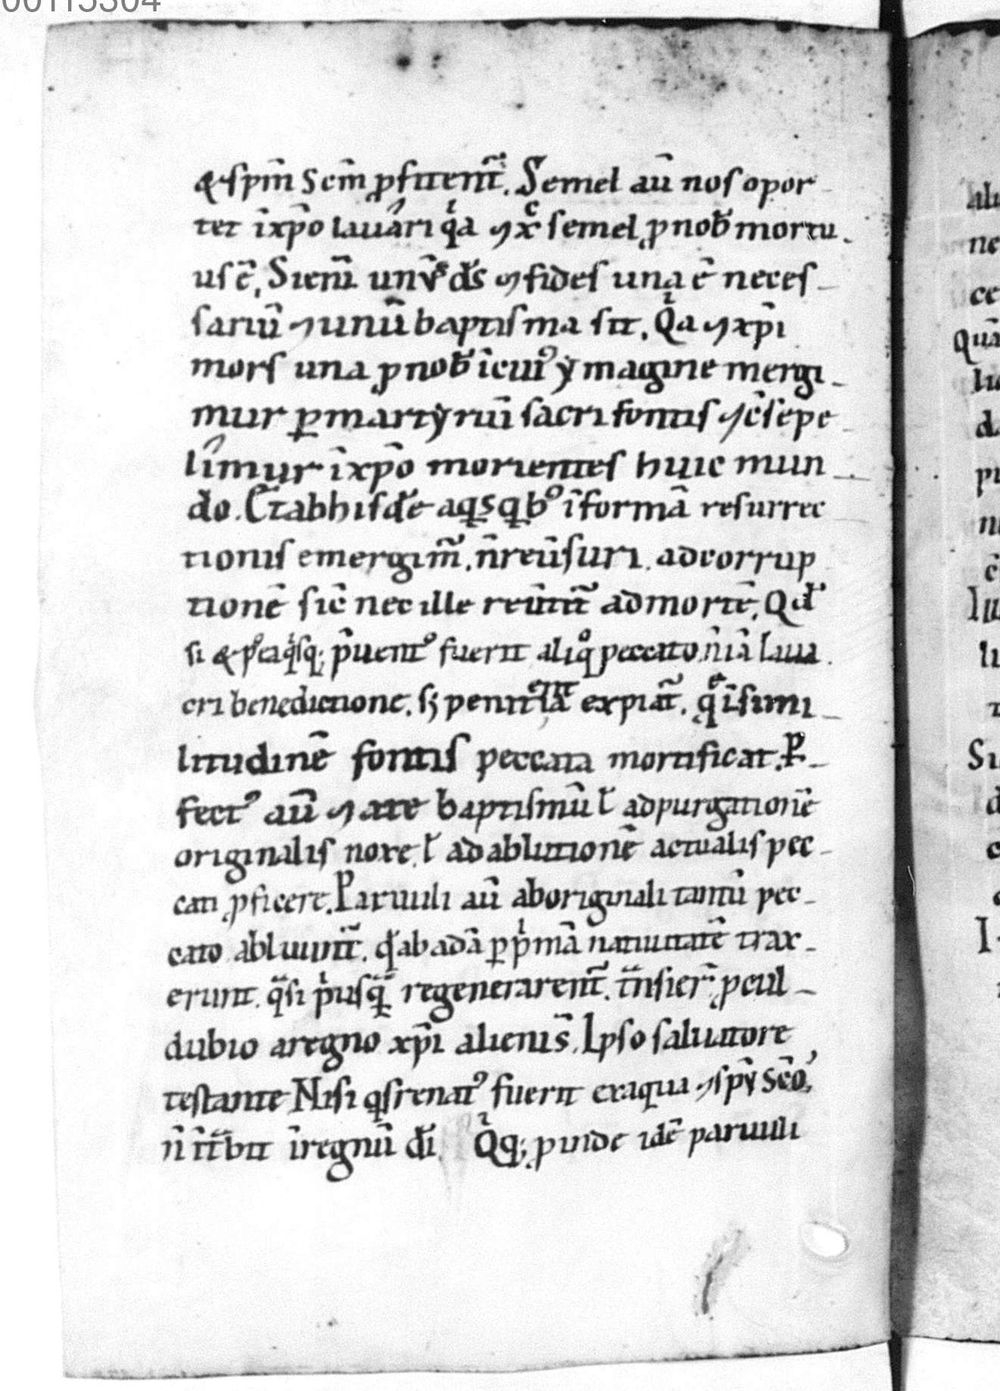 00115304
&spm̄ Scm̄ ꝓfitent᷑. Semel aū nos opor
tet īxp̄o lauari qͥa ⁊xc̄ semel ꝓnob̄ mortu
us ē, Sicm̄ unꝰ ds̄ ⁊fides una ē neces
sariū ⁊unū baptisma sit. Qͥa ⁊xp̄i
mors una ꝓnob̄ ī cuiꝰ ẏmagine mergi
mur ꝑmartẏriū sacri fontis ⁊c̄sepe
limur īxp̄o morientes huic mun
do. Et abhis de aqͣs qͥbꝰ īformā resurrec
tionis emergim᷑. n̄reūsuri adcorrup
tionē sic̄ nec ille reūtit᷑ admortē, Qd̄
si &pꝰeaqͥsq; p̄uentꝰ fuerit aliqͦ peccato n̄ iā laua
cri benedictione. sꝫ penitētia expiat᷑. qͥ īsimi
litudinē fontis peccata mortificat. P
fectꝰ aū ⁊ate baptismū ł adpurgationē
originalis noxe, ł adablutionē actualis pec
cati ꝓficere. Paruuli aū aboriginali tantū pec
cato abluunt᷑. qͩ abadā ꝑpͥmā natiuitatē trax
erunt. qͣsi pͥusqͣ regenerarent᷑. tn̄sier᷑ ꝓcul
dubio aregno xp̄i alieniss̄. Ipso saluatore
testante Nisi qͥs renatꝰ fuerit exaqua ⁊spū Scō,
n̄ īt᷑bit īregnū dī Qͥq; ꝓinde idē paruuli